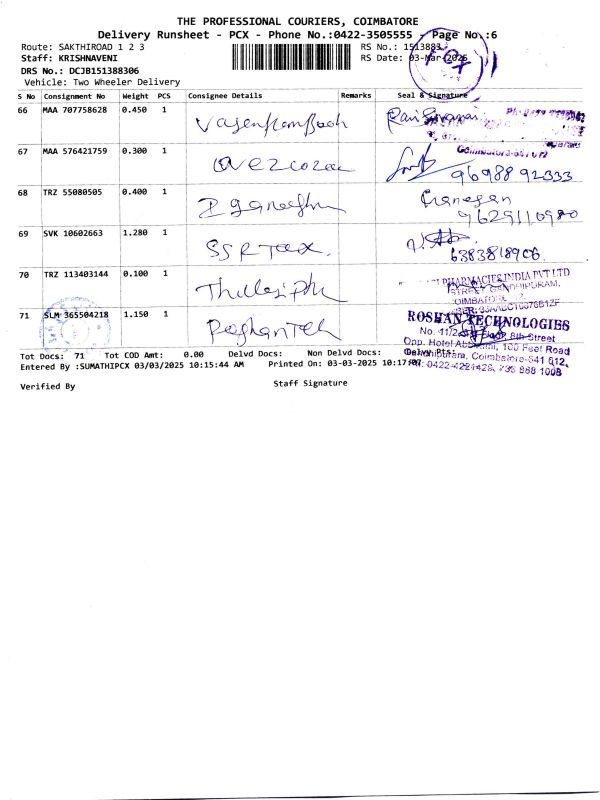 THE PROFESSIONAL COURIERS, COIMBATORE
Delivery Runsheet - PCX - Phone No.:0422-3505555 - Page No.:6
Route: SAKTHIROAD 1 2 3
RS No.: 1513883
Staff: KRISHNAVENI
RS Date: 03-Mar-2025
PCX
DRS No.: DCJB151388306
Vehicle: Two Wheeler Delivery
S No Consignment No Weight PCS Consignee Details Remarks Seal & Signature
66 MAA 707758628 0.450 1
67 MAA 576421759 0.300 1
Coimbatore-641 012
96988 92333
68 TRZ 55080505 0.400 1 P ganesh Ganesan
9629110980
69 SVK 10602663 1.280 1 SSR Tax
6383818906
70 TRZ 113403144 0.100 1 Thulasi Ph
PHARMACIES INDIA PVT LTD
STREET GANDHIPURAM,
COIMBATORE
71 SLM 365504218 1.150 1 Roshan Tech
ROSHAN TECHNOLOGIES
8th Street
Opp. Hotel 100 Feet Road
Gandhipuram, Coimbatore-641 012.
Tot Docs: 71 Tot COD Amt: 0.00 Delvd Docs: Non Delvd Docs:
Entered By :SUMATHIPCX 03/03/2025 10:15:44 AM Printed On: 03-03-2025
Verified By Staff Signature